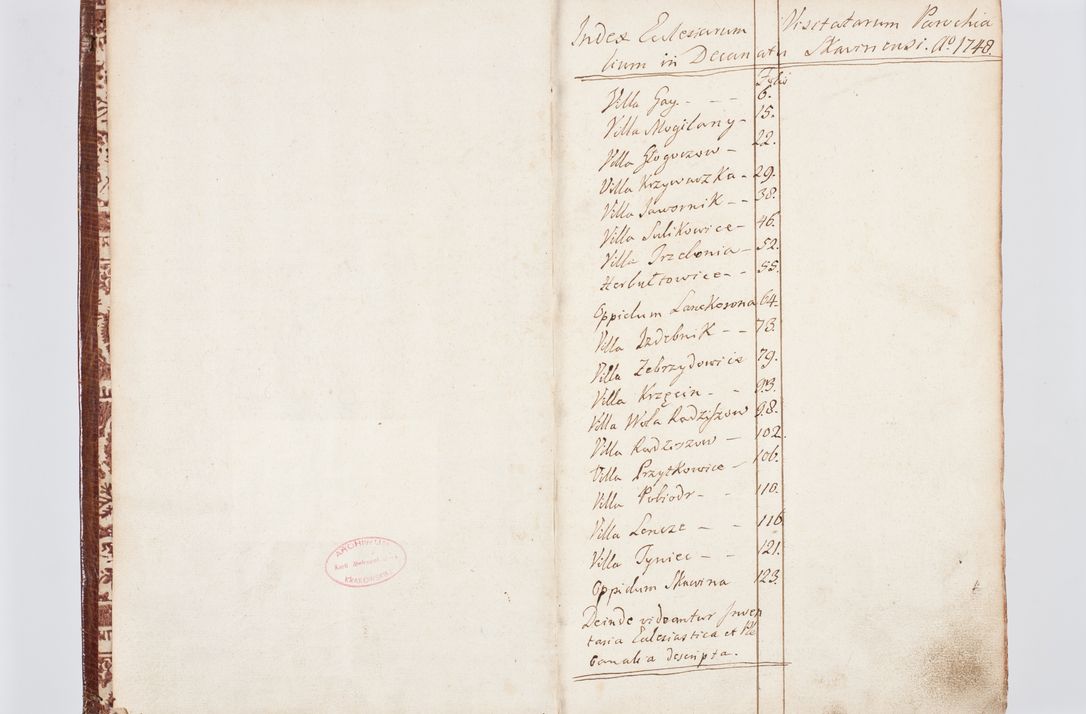 Index Eclesiarum Visitatarum Parochia
lium in Decanatu Skavinensi. Ao 1748.
Folio
Villa Gay - - - 6.
Villa Mogilany - 15.
Villa Głogoczow - 22.
Villa Krzywaczka - 29.
Villa Jawornik - - 38.
Villa Sulikowice - 46.
Villa Trzebonia - 52.
Herbułtowice - - 55.
Oppidum Lanckorona 64.
Villa Izdebnik - - 73.
Villa Zebrzydowice 79.
Villa Krzęcin - - 93.
Villa Wola Radziszow 98.
Villa Radziszow - 102.
Villa Przytkowice - 106.
Villa Pobiedr - - 110.
Villa Lencze - - 116.
Villa Tyniec - - 121.
Oppidum Skawina 123.
Deinde videantur Inven
taria Eclesiastica et Ple
banalia descripta.
ARCHIWUM
Kurii Metropolitalnej
KRAKOWSKIEJ